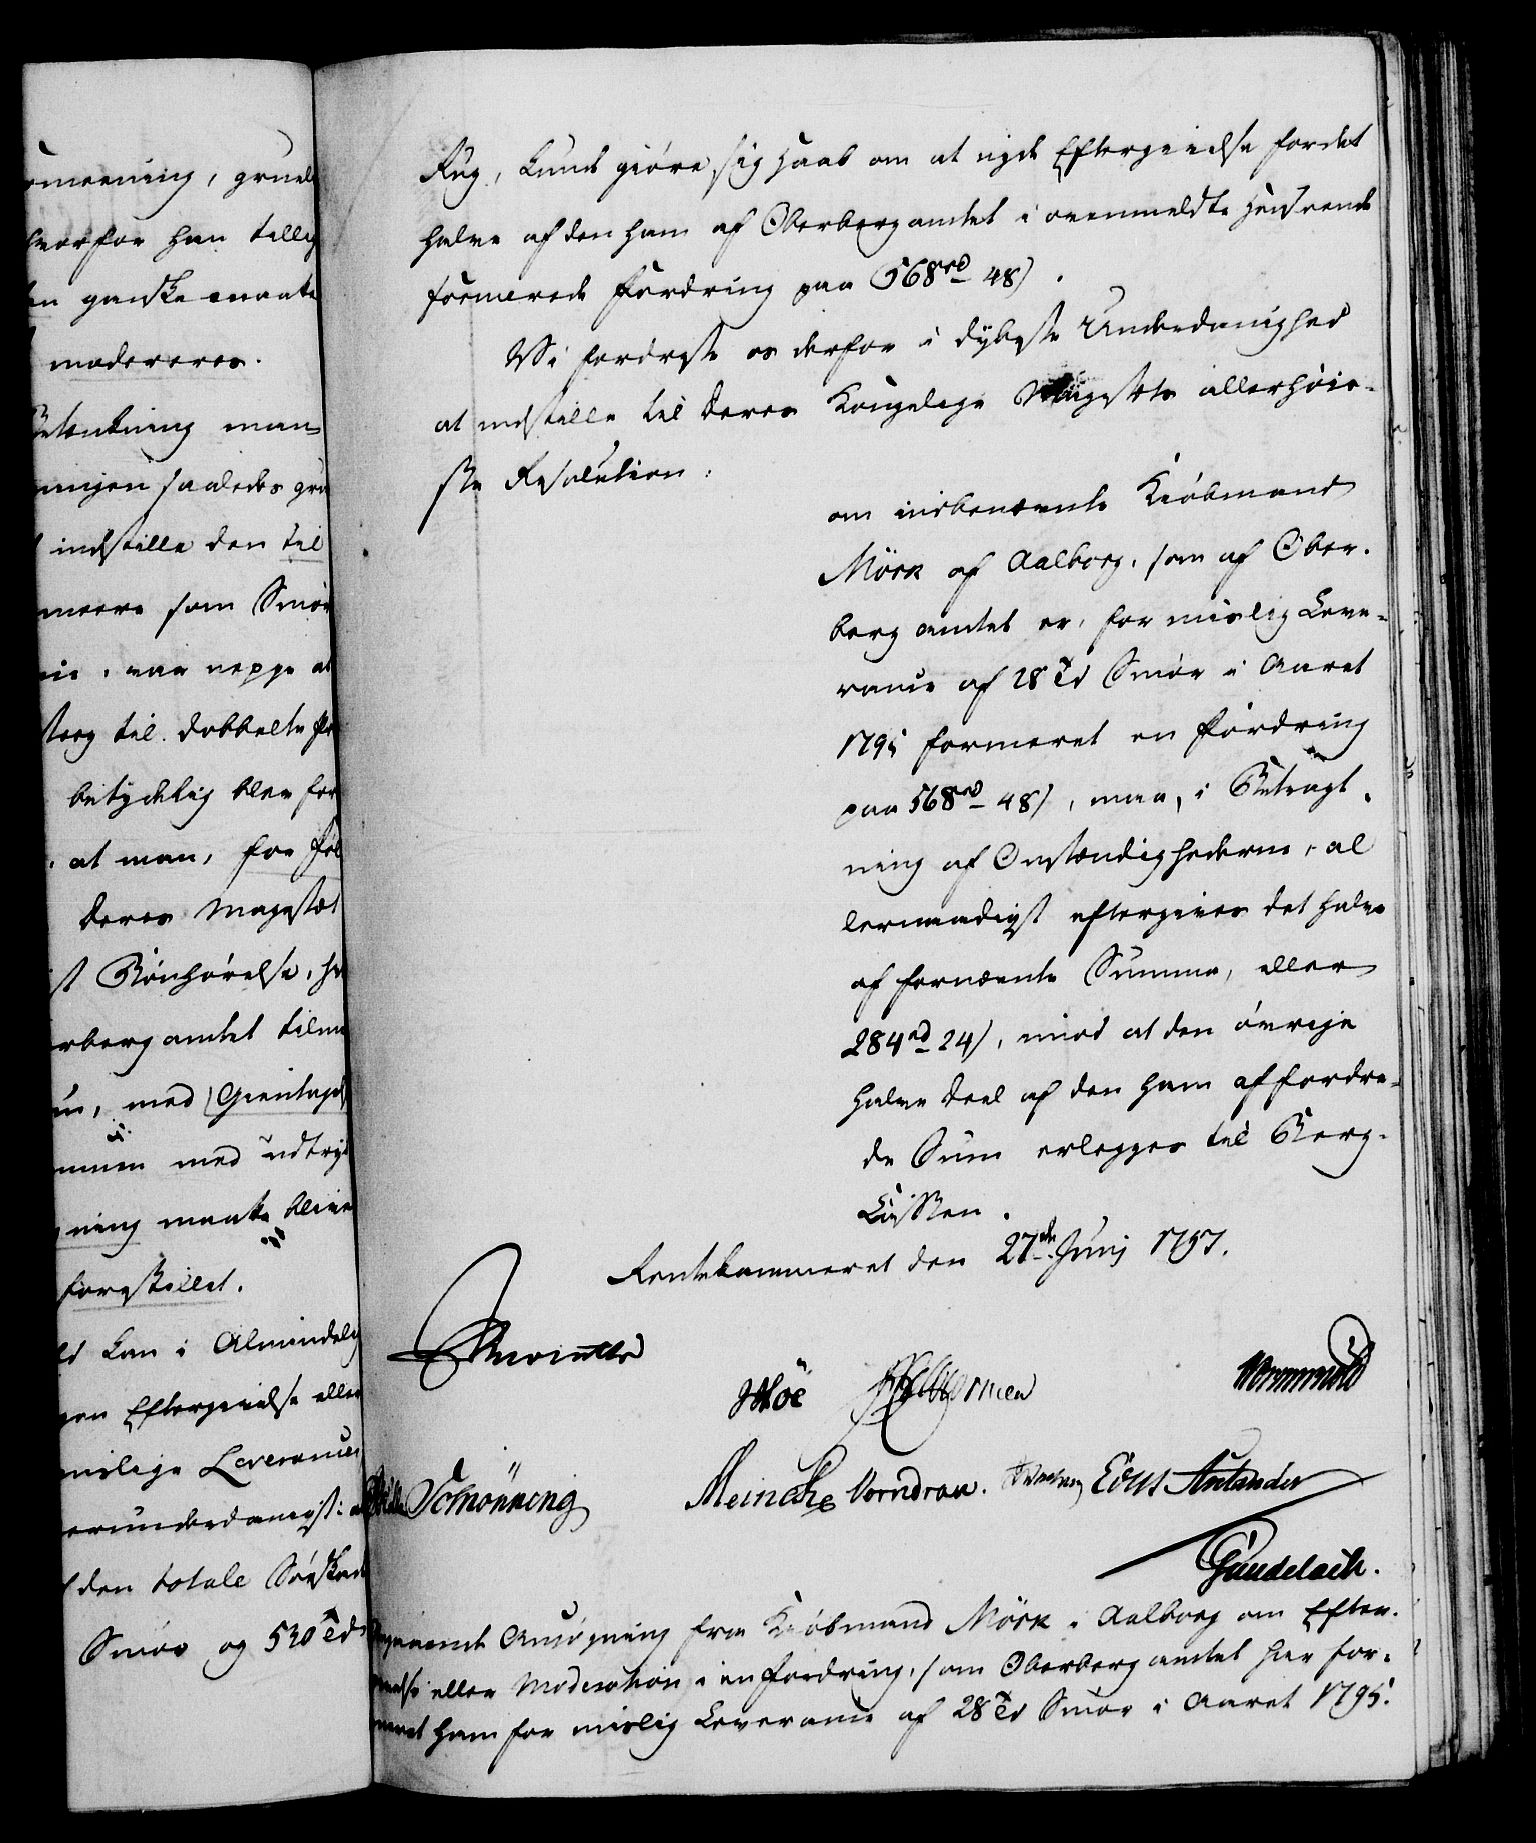 omoening, grunde
hvorfor han tillig
en ganske maate
modereres.
Betænkning man
ningen saaledes gru
indstille den til
meere som Smør
var neppe at
steeg til dobbelte Pr
betydelig blev for
at man, for Føl
Deres Majestæt
st Bønhørelse, h
rberg amtet tilme
med Gientagel
med udtryk
ning maatte blive
forestillet.
kan i Almindelig
gen Eftergivelse eller
mislige Leverancer
erunderdanigst: a
den totale Søeskade
Smør og 530 Td
Rug, kunde giøre sig Haab om at nyde Eftergivelse for det
halve af den ham af Oberbergamtet i ovenmeldte Henseende
formerede Fordring paa 568 rd 48 s.
Vi fordriste os derfor i dybeste Underdanighed
at indstille til Deres Kongelige Majestæts allerhøie-
ste Resolution:
om indbenævnte Kiøbmand
Mörk af Aalborg, som af Ober-
berg amtet er, for mislig Leve-
rance af 28 Td Smør i Aaret
1795 formeret en Fordring
paa 568 rd 48 s, maa, i Betragt-
ning af Omstændighederne, al
lernaadigst eftergives det halve
af fornævnte Summa, eller
284 rd 24 s, imod at den øvrige
halve Deel af den ham affordre-
de Sum erlegges til Berg-
Cassen.
Rentekammeret den 27de Junij 1797.
Moe
Wormskiold
Schönning
Meincke Vorndran.
Gundelach.
Ansøgning fra Kiøbmand Mörk i Aalborg om Efter-
givelse eller Moderation i en Fordring, som Oberberg amtet har for-
meret ham for mislig Leverance af 28 Td Smør i Aaret 1795.